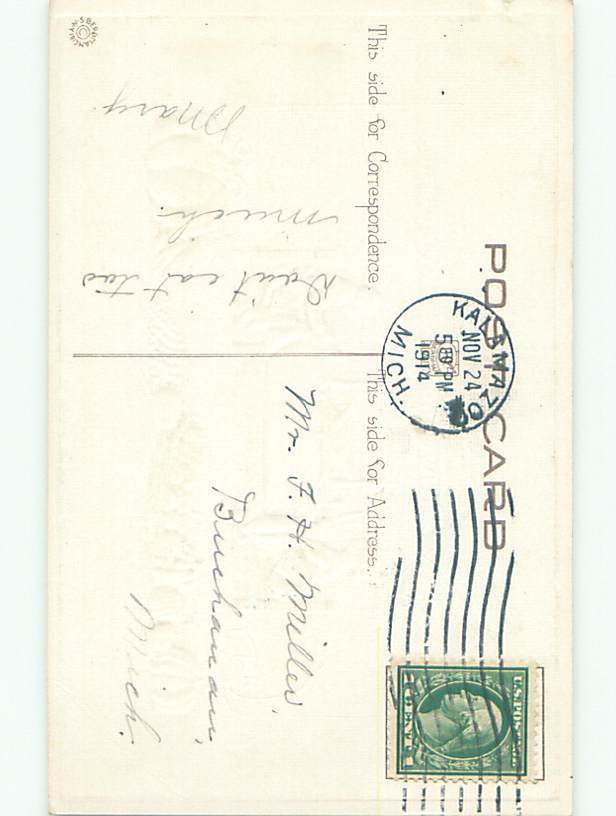 POST CARD
This side for Correspondence.
This side for Address.
KALAMAZOO
NOV 24
5 30 PM
1914
MICH.
U.S. POSTAGE
Don't eat too
much.
Mary
Mr. F. H. Miller,
Buchanan,
Mich.